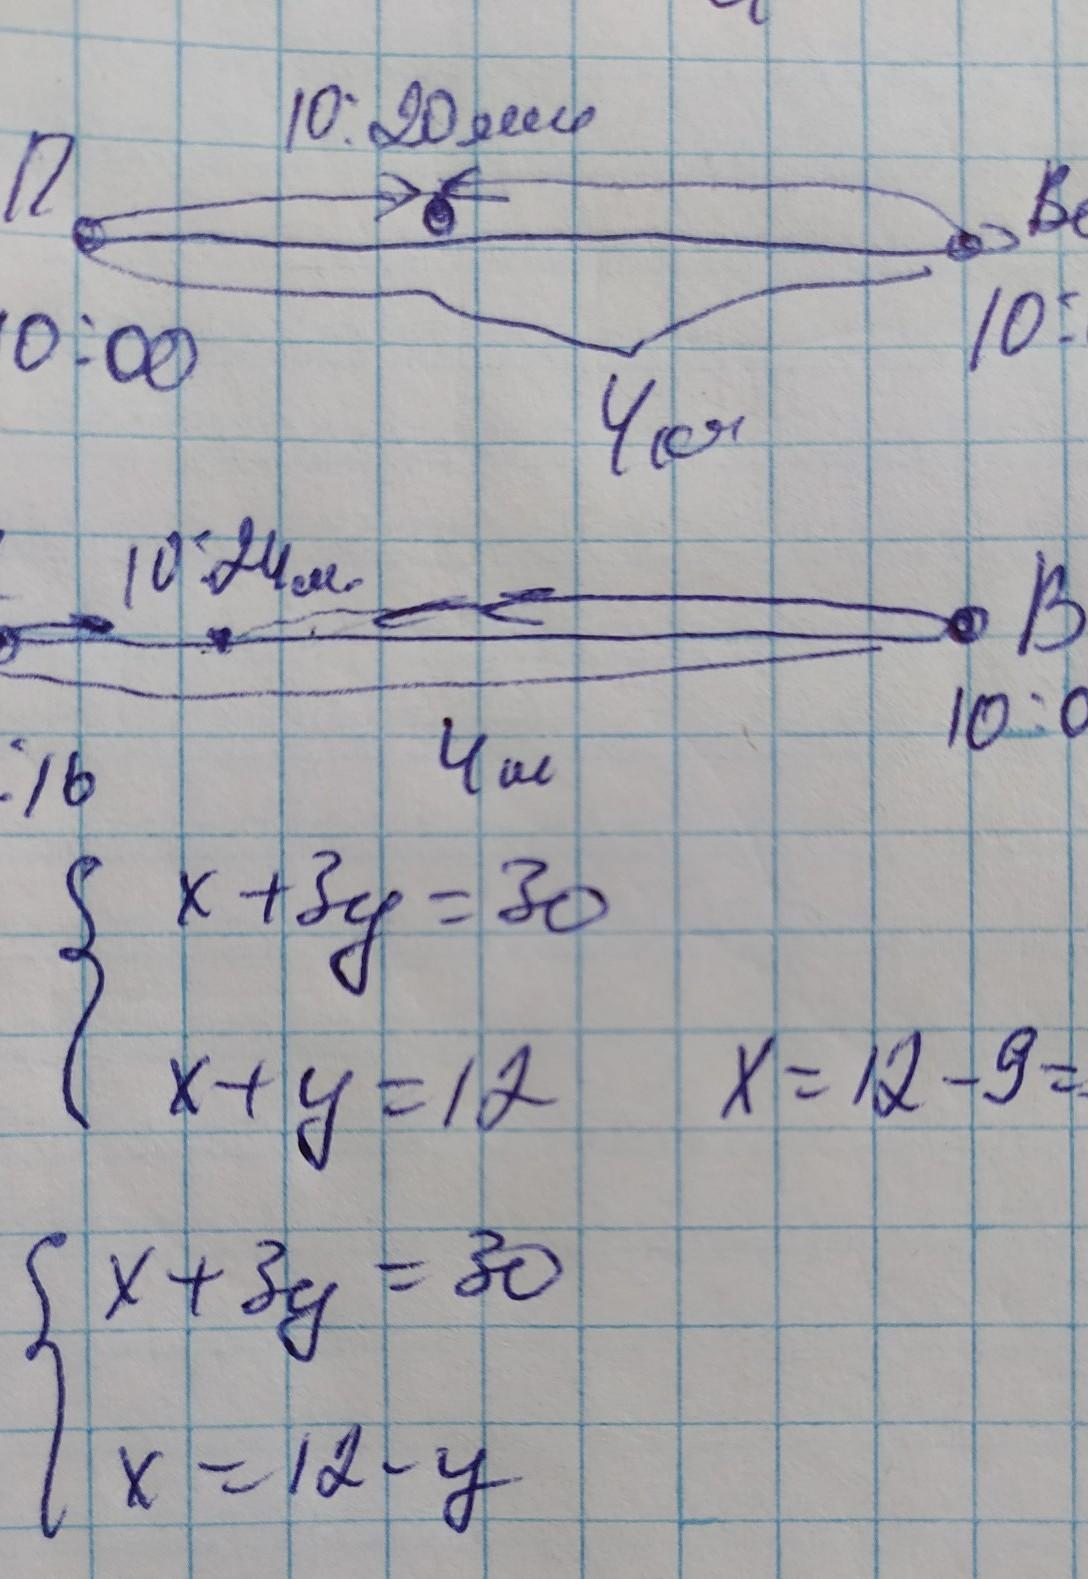 10:20мин
П
10:00
10:
4км
10:24м.
В
10:0
:16
4км
x+3y=30
x+y=12 x=12-9=
x+3y=30
x=12-y